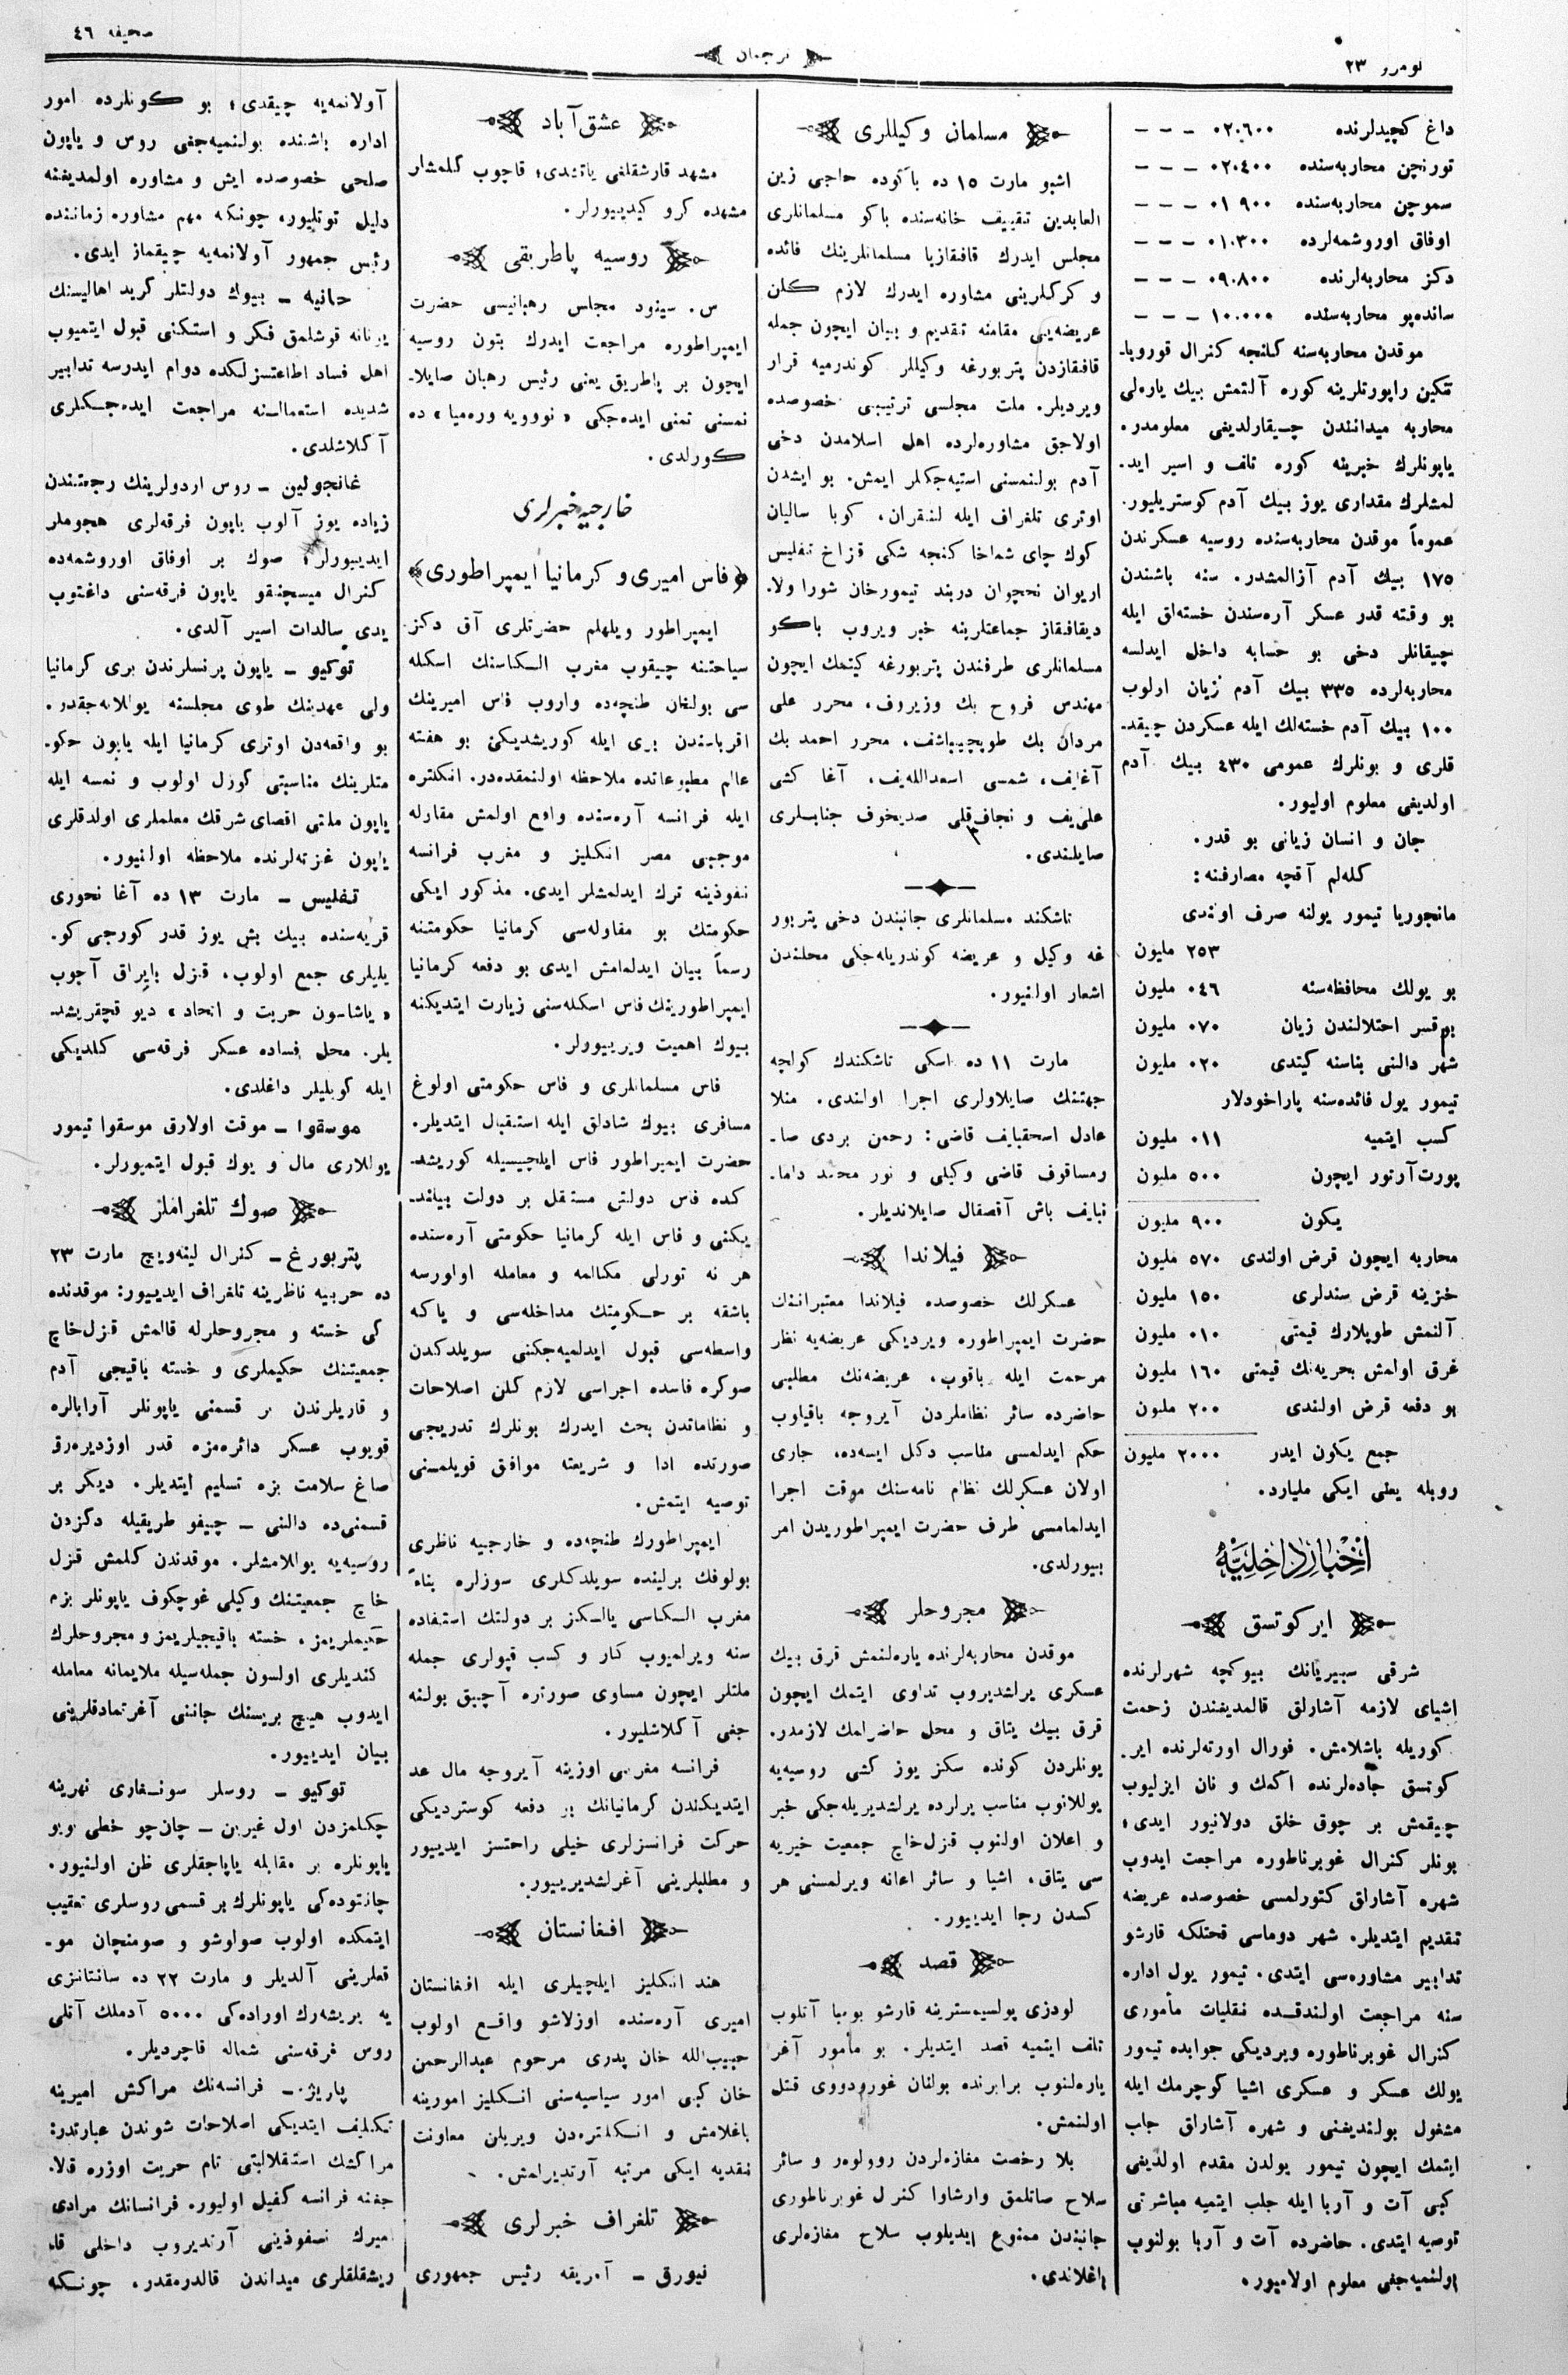 نومرو ٢٣
ترجمان
صحيفه ٤٦
داغ كچيدلرنده ٠٢.٦٠٠ — — —
تورنچن محاربه‌سنده ٠٢.٤٠٠ — — —
سموچن محاربه‌سنده ٠١ ٩٠٠ — — —
اوفاق اوروشمه‌لرده ٠١.٣٠٠ — — —
دكز محاربه‌لرنده ٠٩.٨٠٠ — — —
سانده‌پو محاربه‌سنده ١٠.٠٠٠ — — —
موقدن محاربه‌سنه كلنجه كنرال قوروپا-
تكين راپورتلرينه كوره آلتمش بيك يارەلى
محاربه ميدانندن چيقارلديغى معلومدر.
ياپونلرك خبرينه كوره تلف و اسير ايد-
لمشلرك مقدارى يوز بيك آدم كوستريليور.
عموماً موقدن محاربه‌سنده روسيه عسكرندن
١٧٥ بيك آدم آزالمشدر. سنه باشندن
بو وقته قدر عسكر آره‌سندن خسته‌لق ايله
چيقانلر دخى بو حسابه داخل ايدلسه
محاربه‌لرده ٣٣٥ بيك آدم زيان اولوب
١٠٠ بيك آدم خسته‌لك ايله عسكردن چيقد-
قلرى و بونلرك عمومى ٤٣٠ بيك آدم
اولديغى معلوم اوليور.
جان و انسان زيانى بو قدر.
كله‌لم آقچه مصارفنه:
مانجوريا تيمور يولنه صرف اوندى
٢٥٣ مليون
بو يولك محافظه‌سنه ٠٤٦ مليون
بوقسر احتلالندن زيان ٠٧٠ مليون
شهر دالنى بناسنه كيتدى ٠٢٠ مليون
تيمور يول فائده‌سنه پاراخودلار
كسب ايتميه ٠١١ مليون
پورت‌آرتور ايچون ٥٠٠ مليون
يكون ٩٠٠ مليون
محاربه ايچون قرض اولندى ٥٧٠ مليون
خزينه قرض سندلرى ١٥٠ مليون
آلنمش طوپلارك قيمتى ٠١٠ مليون
غرق اولمش بحريه‌نك قيمتى ١٦٠ مليون
بو دفعه قرض اولندى ٢٠٠ مليون
جمع يكون ايدر ٢٠٠٠ مليون
روبله يعنى ايكى مليارد.
اخبار داخليه
ايركوتسق
شرقى سبيريانك بيوكچه شهرلرنده
اشياى لازمه آشارلق قالمديغندن زحمت
كوريله باشلامش. فورال اورته‌لرنده اير-
كوتسق جاده‌لرنده اكمك و نان ايزليوب
چيقمش بر چوق خلق دولانيور ايدى؛
بونلر كنرال غوبرناطوره مراجعت ايدوب
شهره آشارلق كتورلمسى خصوصده عريضه
تقديم ايتديلر. شهر دوماسى قحتلكه قارشو
تدابير مشاوره‌سى ايتدى. تيمور يول اداره
سنه مراجعت اولندقده نقليات مأمورى
كنرال غوبرناطوره ويرديكى جوابده تيمور
يولك عسكر و عسكرى اشيا كوچرمك ايله
مشغول بولنديغنى و شهره آشارلق جاب
ايتمك ايچون تيمور يولدن مقدم اولديغى
كبى آت و آربا ايله جلب ايتميه مباشرتى
توصيه ايتدى. حاضرده آت و آربا بولنوب
اولنميه‌جغى معلوم اولاميور.
مسلمان وكيللرى
اشبو مارت ١٥ ده باكوده حاجى زين
العابدين تقييف خانه‌سنده باكو مسلمانلرى
مجلس ايدرك قافقازيا مسلمانلرينك فائده
و كركلرينى مشاوره ايدرك لازم كلن
عريضه‌يى مقامنه تقديم و بيان ايچون جمله
قافقازدن پتربورغه وكيللر كوندرميه قرار
ويرديلر. ملت مجلسى ترتيبى خصوصده
اولاجق مشاوره‌لرده اهل اسلامدن دخى
آدم بولنمسنى استيه‌جكلر ايمش. بو ايشدن
اوترى تلغراف ايله لنقران، كوبا ساليان
كوك چاى شماخا كنجه شكى قزاخ تفليس
اريوان نخچوان دربند تيمورخان شورا ولا-
ديقافقاز جماعتلرينه خبر ويروب باكو
مسلمانلرى طرفندن پتربورغه كيتمك ايچون
مهندس فروح بك وزيروف، محرر على
مردان بك طوپچيباشف، محرر احمد بك
آغايف، شمسى اسعدالله‌يف، آغا كشى
على‌يف و نجاف‌قلى صديخوف جنابلرى
صايلندى.
تاشكند مسلمانلرى جانبندن دخى پتربور
غه وكيل و عريضه كوندريله‌جكى محلندن
اشعار اولنيور.
مارت ١١ ده اسكى تاشكندك كولچه
جهتنك صايلاولرى اجرا اولندى. منلا
عادل اسحقبايف قاضى؛ رحمن بردى صا-
رمساقوف قاضى وكيلى و نور محمد داما-
نبايف باش آقصقال صايلانديلر.
فيلاندا
عسكرلك خصوصده فيلاندا معتبراننك
حضرت ايمپراطوره ويرديكى عريضه‌يه نظر
مرحمت ايله باقوب، عريضه‌نك مطلبى
حاضرده سائر نظاملردن آيروجه باقياوب
حكم ايدلمسى مناسب دكل ايسه‌ده، جارى
اولان عسكرلك نظام نامه‌سنك موقت اجرا
ايدلمامسى طرف حضرت ايمپراطوريدن امر
بيورلدى.
مجروحلر
موقدن محاربه‌لرنده ياره‌لنمش قرق بيك
عسكرى يرلشديروب تداوى ايتمك ايچون
قرق بيك يتاق و محل حاضرلمك لازمدر.
بونلردن كونده سكز يوز كشى روسيه‌يه
يوللانوب مناسب يرلرده يرلشديريله‌جكى خبر
و اعلان اولنوب قزل‌خاچ جمعيت خيريه
سى يتاق، اشيا و سائر اعانه ويرلمسنى هر
كسدن رجا ايدييور.
قصد
لودزى پوليسمسترينه قارشو بومبا آتلوب
تلف ايتميه قصد ايتديلر. بو مأمور آغر
ياره‌لنوب برابرنده بولنان غورودووى قتل
اولنمش.
بلا رخصت مغازه‌لردن روولوور و سائر
سلاح صاتلمق وارشاوا كنرل غوبرناطورى
جانبندن ممنوع ايديلوب سلاح مغازه‌لرى
باغلاندى.
عشق‌آباد
مشهد قارشقلغى ياتشدى؛ قاچوب كلمشلر
مشهده كرو كيدييورلر.
روسيه پاطريقى
س. سينود مجلس رهبانيسى حضرت
ايمپراطوره مراجعت ايدرك بتون روسيه
ايچون بر پاطريق يعنى رئيس رهبان صايلا-
نمسنى تمنى ايده‌جكى «نوويه ورەميا» ده
كورلدى.
خارجيه خبرلرى
﴿فاس اميرى و كرمانيا ايمپراطورى﴾
ايمپراطور ويلهلم حضرتلرى آق دكز
سياحتنه چيقوب مغرب الكاسنك اسكله
سى بولنان طنجه‌ده واروب فاس اميرينك
اقرباسندن برى ايله كوريشديكى بو هفته
عالم مطبوعاتده ملاحظه اولنمقده‌در. انكلتره
ايله فرانسه آره‌سنده واقع اولمش مقاوله
موجبى مصر انكليز و مغرب فرانسه
نفوذينه ترك ايدلمشلر ايدى. مذكور ايكى
حكومتك بو مقاوله‌سى كرمانيا حكومتنه
رسماً بيان ايدلمامش ايدى بو دفعه كرمانيا
ايمپراطورينك فاس اسكله‌سنى زيارت ايتديكنه
بيوك اهميت ويرييورلر.
فاس مسلمانلرى و فاس حكومتى اولوغ
مسافرى بيوك شادلق ايله استقبال ايتديلر.
حضرت ايمپراطور فاس ايلچيسيله كوريشد-
كده فاس دولتى مستقل بر دولت بيلند-
يكنى و فاس ايله كرمانيا حكومتى آره‌سنده
هر نه تورلى مكالمه و معامله اولورسه
باشقه بر حكومتك مداخله‌سى و ياكه
واسطه‌سى قبول ايدلميه‌جكنى سويلدكدن
صوكره فاسده اجراسى لازم كلن اصلاحات
و نظاماتدن بحث ايدرك بونلرك تدريجى
صورتده ادا و شريعته موافق قويلمسنى
توصيه ايتمش.
ايمپراطورك طنجه‌ده و خارجيه ناظرى
بولوفك برلينده سويلدكلرى سوزلره بناءً
مغرب الكاسى يالكز بر دولتك استفاده
سنه ويرلميوب كار و كسب قپولرى جمله
ملتلر ايچون مساوى صورتده آچيق بولنه
جغى آكلاشليور.
فرانسه مغربى اوزينه آيروجه مال عد
ايتديكندن كرمانيانك بو دفعه كوسترديكى
حركت فرانسزلرى خيلى راحتسز ايدييور
و مطلبلرينى آغرلشديرييور.
افغانستان
هند انكليز ايلچيلرى ايله افغانستان
اميرى آره‌سنده اوزلاشو واقع اولوب
حبيب‌الله خان پدرى مرحوم عبدالرحمن
خان كبى امور سياسيه‌سنى انكليز امورينه
باغلامش و انكلتره‌دن ويريلن معاونت
نقديه ايكى مرتبه آرتديرلمش.
تلغراف خبرلرى
نيورق — آمريقه رئيس جمهورى
آولانمه‌يه چيقدى؛ بو كونلرده امور
اداره باشنده بولنميه‌جغى روس و ياپون
صلحى خصوصده ايش و مشاوره اولمديغنه
دليل توتليور، چونكه مهم مشاوره زماننده
رئيس جمهور آولانمه‌يه چيقماز ايدى.
حانيه — بيوك دولتلر كريد اهاليسنك
يونانه قوشلمق فكر و استكنى قبول ايتميوب
اهل فساد اطاعتسزلكده دوام ايدرسه تدابير
شديده استعمالنه مراجعت ايده‌جكلرى
آكلاشلدى.
غانجولين — روس اردولرينك رجعتندن
زياده يوز آلوب ياپون فرقه‌لرى هجوملر
ايدييورلر؛ صوك بر اوفاق اوروشمه‌ده
كنرال ميسچنقو ياپون فرقه‌سنى داغتوب
يدى سالدات اسير آلدى.
توكيو — ياپون پرنسلرندن برى كرمانيا
ولى عهدينك طوى مجلسنه يوللانه‌جقدر.
بو واقعه‌دن اوترى كرمانيا ايله ياپون حكو-
متلرينك مناسبتى كوزل اولوب و نمسه ايله
ياپون ملتى اقصاى شرقك معلملرى اولدقلرى
ياپون غزته‌لرنده ملاحظه اولنيور.
تفليس — مارت ١٣ ده آغا نحورى
قريه‌سنده بيك بش يوز قدر كورجى كو-
يليلرى جمع اولوب، قزل بايراق آچوب
«ياشاسون حريت و اتحاد» ديو قچقريشد-
يلر. محل فساده عسكر فرقه‌سى كلديكى
ايله كويليلر داغلدى.
موسقوا — موقت اولارق موسقوا تيمور
يوللارى مال و يوك قبول ايتميورلر.
صوك تلغراملز
پتربورغ — كنرال لينه‌ويچ مارت ٢٣
ده حربيه ناظرينه تلغراف ايدييور: موقدنده
كى خسته و مجروحلرله قالمش قزل‌خاچ
جمعيتنك حكيملرى و خسته باقيجى آدم
و قاريلرندن بر قسمنى ياپونلر آرابالره
قويوب عسكر دائره‌مزه قدر اوزديره‌رق
صاغ سلامت بزه تسليم ايتديلر. ديكر بر
قسمنى‌ده دالنى — چيفو طريقيله دكزدن
روسيه‌يه يوللامشلر. موقدندن كلمش قزل
خاچ جمعيتنك وكيلى غوچكوف ياپونلر بزم
حكيملريمز، خسته باقيجيلريمز و مجروحلرك
كنديلرى اولسون جمله‌سيله ملايمانه معامله
ايدوب هيچ بريسنك جاننى آغرتمادقلرينى
بيان ايدييور.
توكيو — روسلر سونغارى نهرينه
چكلمزدن اول غيرين — چان‌چو خطى بويو
ياپونلره بر مقابله ياپاجقلرى ظن اولنيور.
چانتوده‌كى ياپونلرك بر قسمى روسلرى تعقيب
ايتمكده اولوب صواوشو و صومنچان مو-
قعلرينى آلديلر و مارت ٢٢ ده سانتانزى
يه بريشه‌رك اوراده‌كى ٥٠٠٠ آدملك آتلى
روس فرقه‌سنى شماله قاچرديلر.
پاريز — فرانسه‌نك مراكش اميرينه
تكليف ايتديكى اصلاحات شوندن عبارتدر:
مراكشك استقلاليتى تام حريت اوزره قالا-
جغنه فرانسه كفيل اوليور. فرانسانك مرادى
اميرك نفوذينى آرتديروب داخلى قا-
ريشقلقلرى ميداندن قالدرمقدر، چونكه